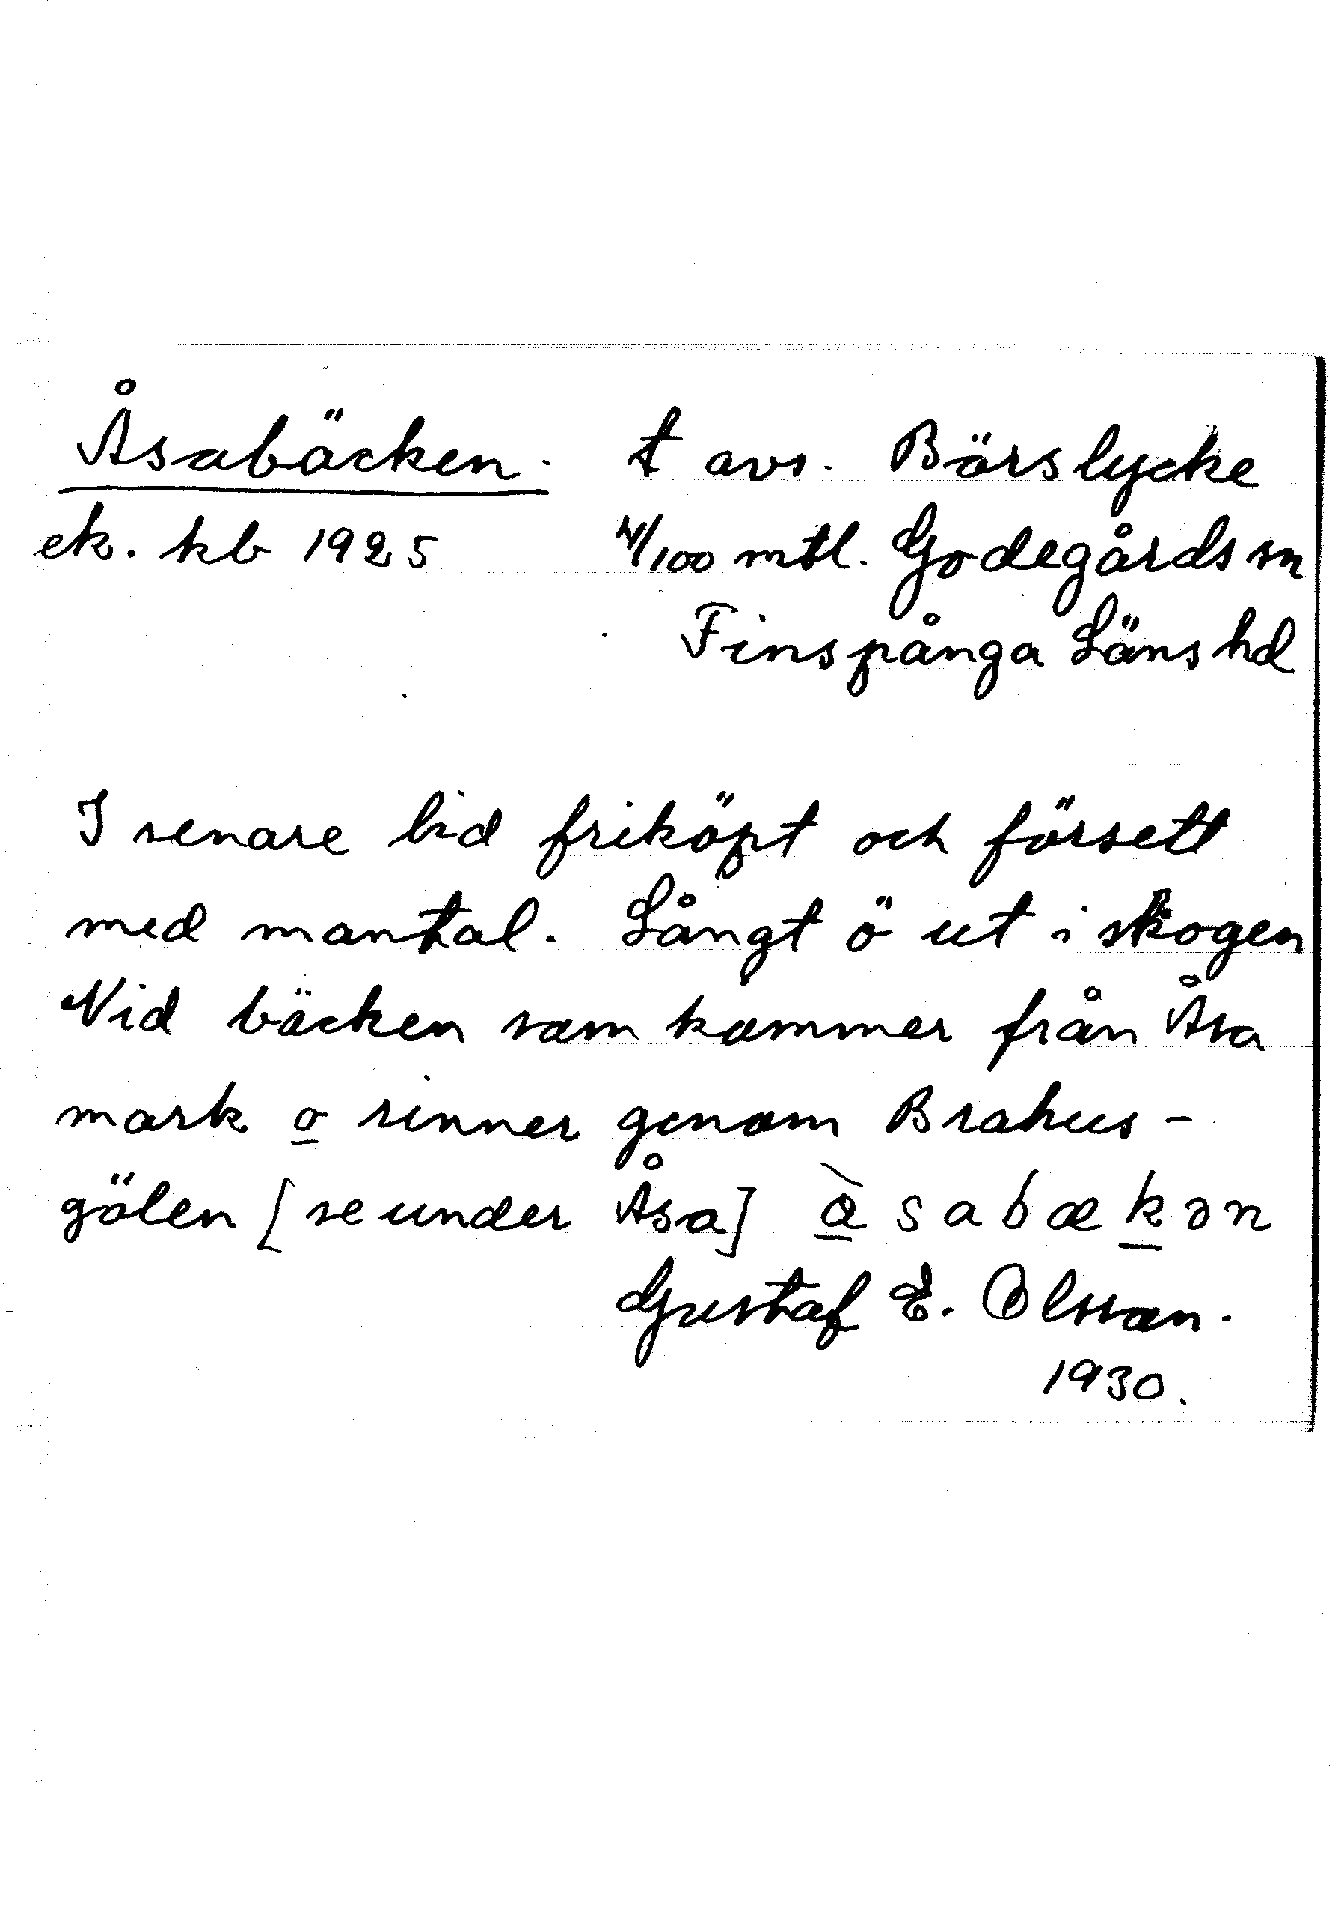 Åsabäcken. t avs. Börslycke
ek. kb 1925 4/100 mtl. Godegårds sn
Finspånga Läns hd
I senare tid friköpt och försett
med mantal. Långt ö ut i skogen
Vid bäcken som kommer från Åsa
mark o rinner genom Brahus-
gölen [se under Åsa] å̀sabækən
Gustaf E. Olsson.
1930.